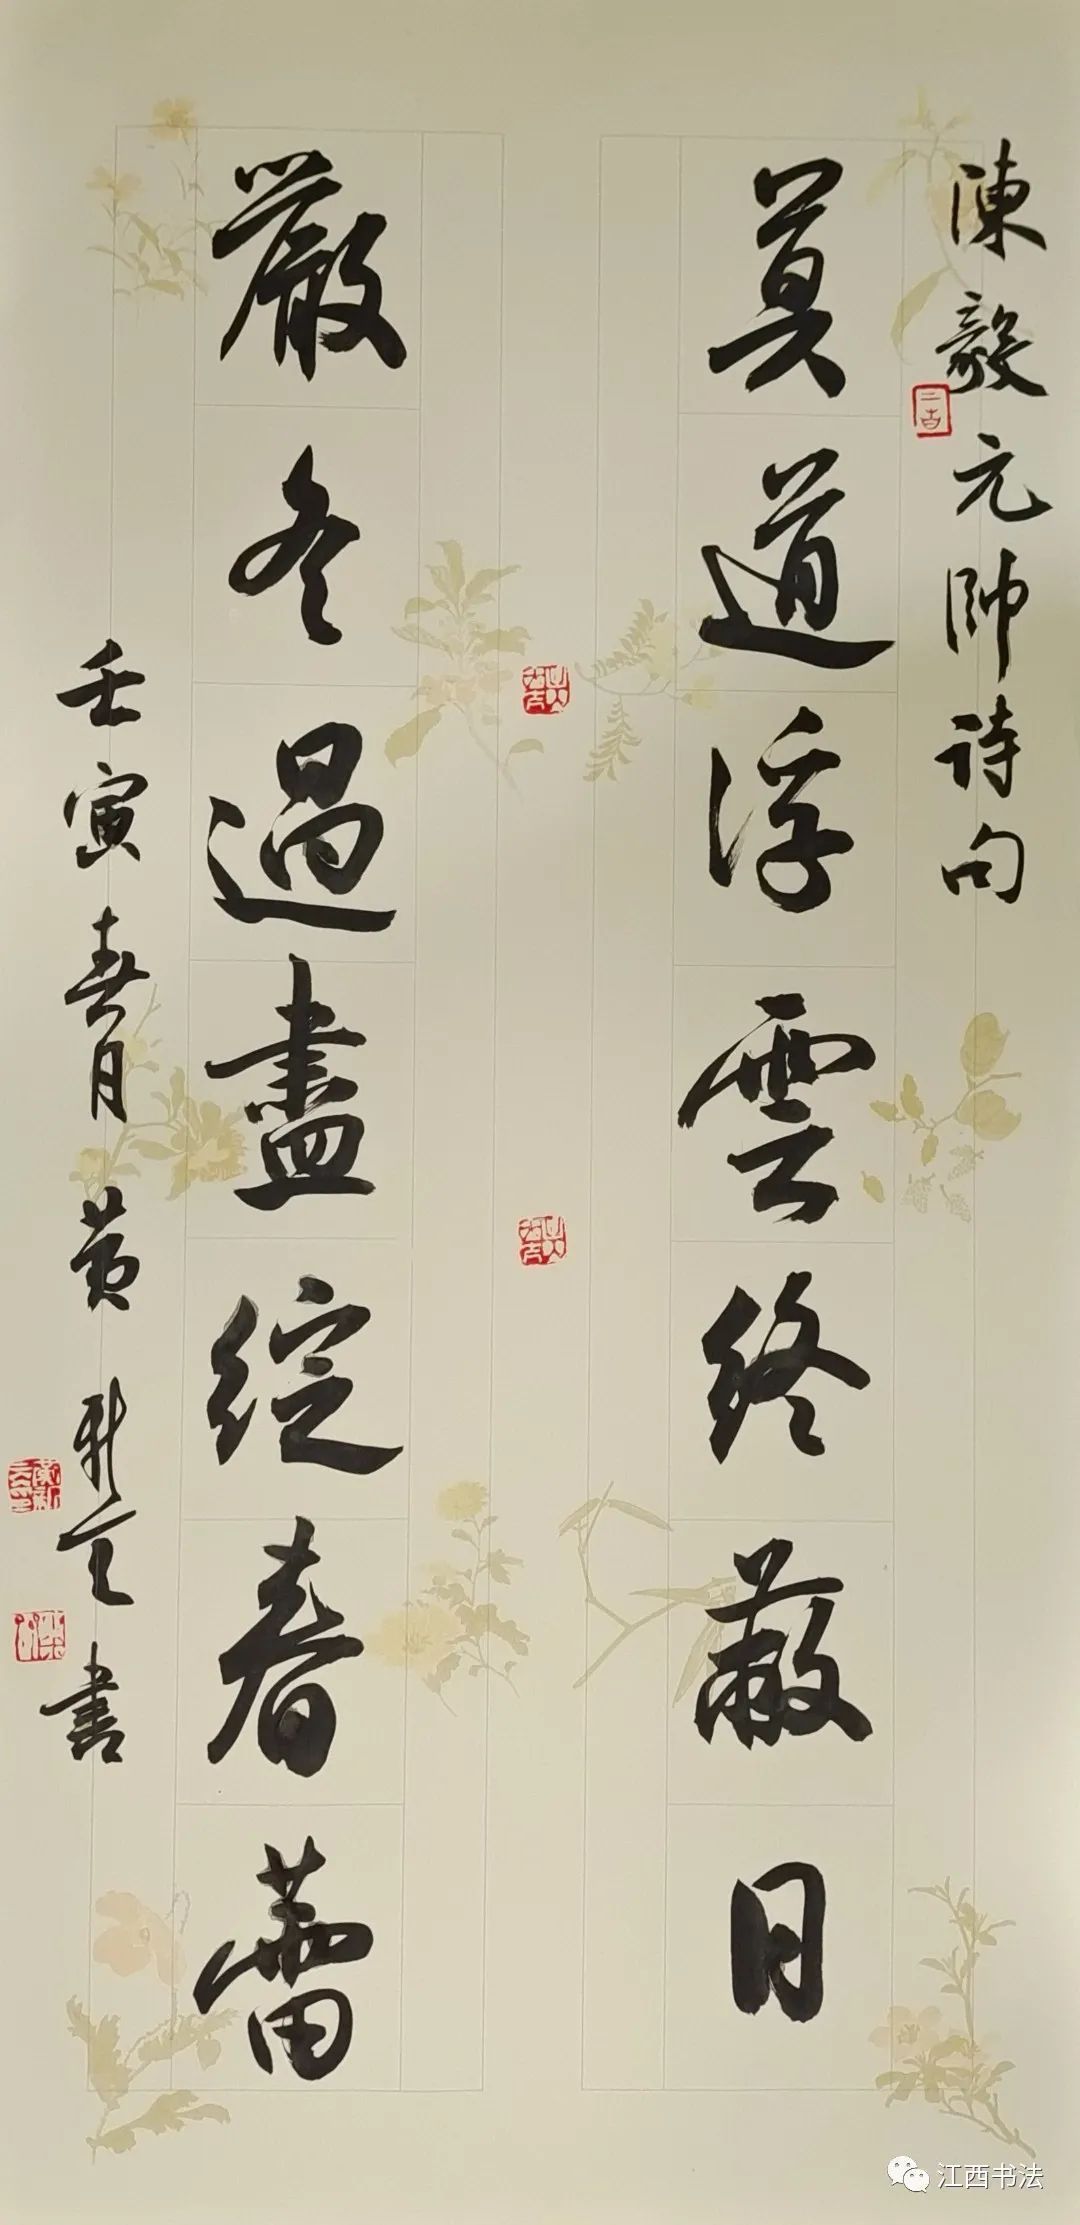 陳毅元帥诗句
莫道浮雲終蔽日
嚴冬過盡綻春蕾
壬寅春月黄新元書
江西书法